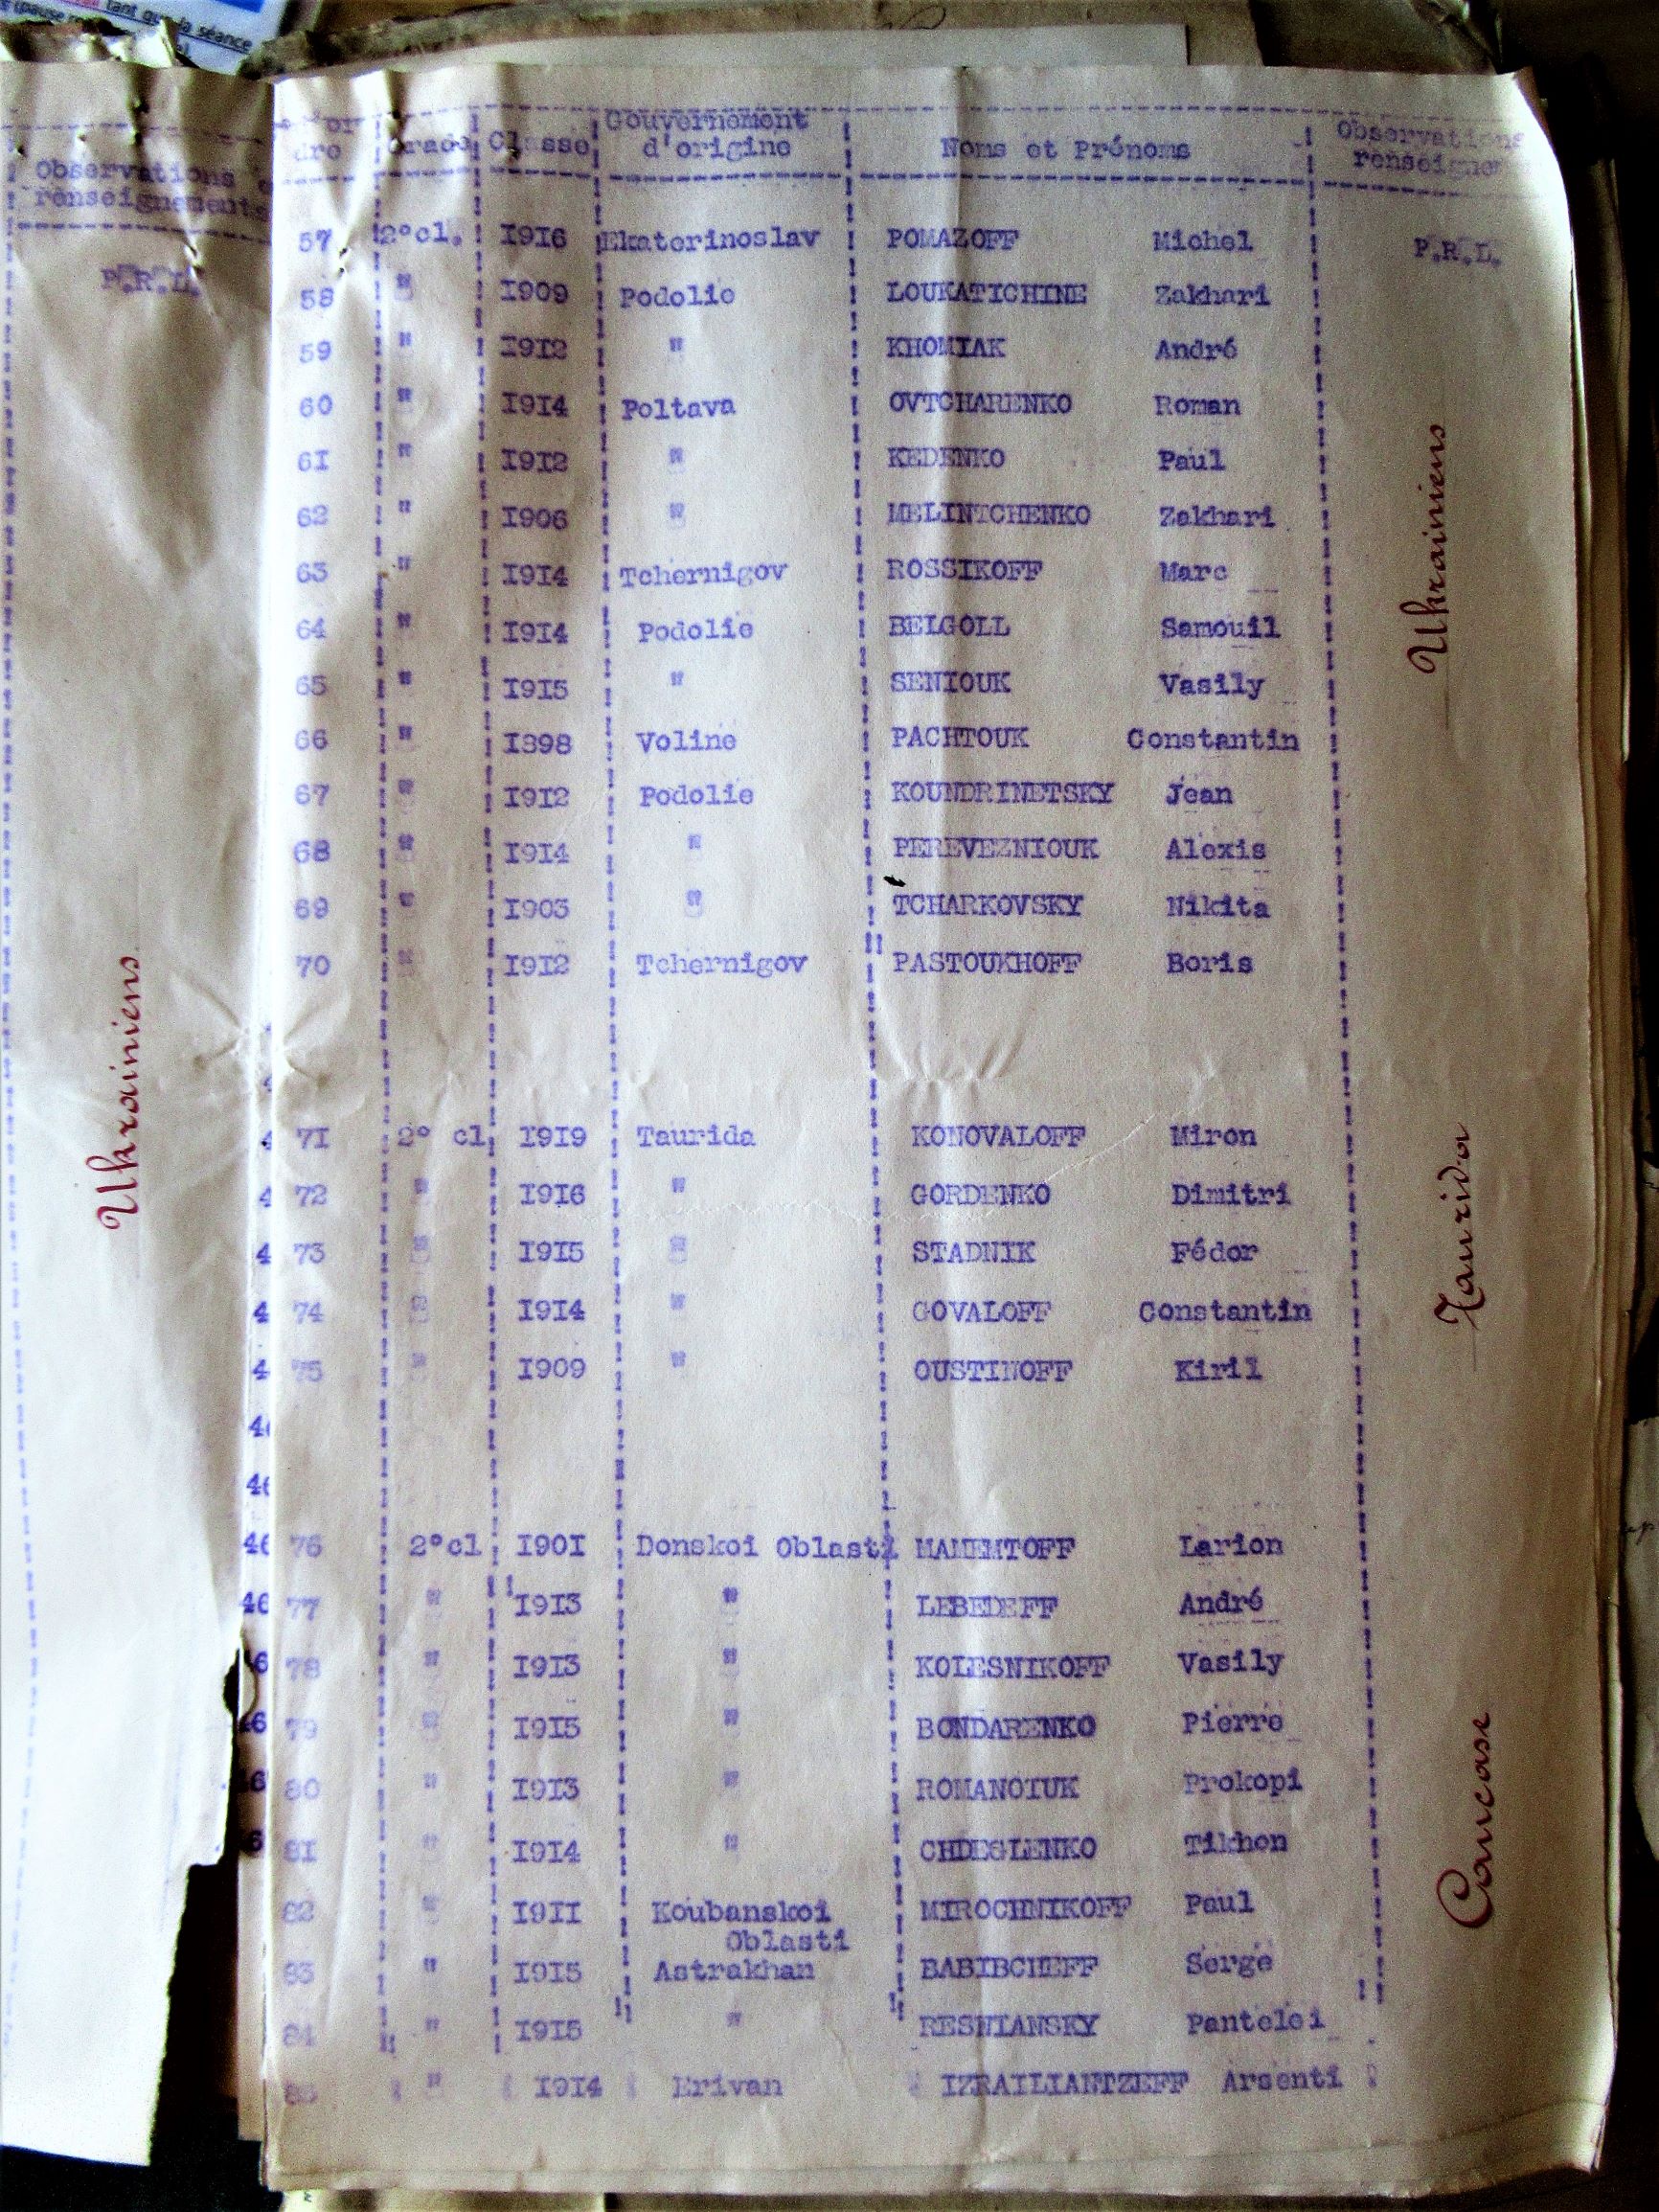 tant que la séance
Observations
renseignements
P.R.L.
Ukrainiens
dre Grade Classe Gouvernement d'origine Noms et Prénoms Observations
57 2°cl. I9I6 Ekaterinoslav POMAZOFF Michel P.R.L.
58 " I909 Podolie LOUKATICHINE Zakhari
59 " I9I2 " KHOMIAK André
60 " I9I4 Poltava OVTCHARENKO Roman
6I " I9I2 " KEDENKO Paul
62 " I906 " MELINTCHENKO Zakhari
63 " I9I4 Tchernigov ROSSIKOFF Marc
64 " I9I4 Podolie BELGOLL Samouil
65 " I9I5 " SENIOUK Vasily
66 " I898 Voline PACHTOUK Constantin
67 " I9I2 Podolie KOUNDRINETSKY Jean
68 " I9I4 " PEREVEZNIOUK Alexis
69 " I903 " TCHARKOVSKY Nikita
70 " I9I2 Tchernigov PASTOUKHOFF Boris
Ukrainiens
7I 2° cl I9I9 Taurida KONOVALOFF Miron
72 " I9I6 " GORDENKO Dimitri
73 " I9I5 " STADNIK Fédor
74 " I9I4 " GOVALOFF Constantin
75 " I909 " OUSTINOFF Kiril
Taurida
76 2°cl I90I Donskoi Oblasti MAMEMTOFF Larion
77 " I9I3 " LEBEDEFF André
78 " I9I3 " KOLESNIKOFF Vasily
79 " I9I5 " BONDARENKO Pierre
80 " I9I3 " ROMANOIUK Prokopi
8I " I9I4 " CHDESLENKO Tikhon
82 " I9II Koubanskoi MIROCHNIKOFF Paul
Oblasti
83 " I9I5 Astrakhan BABIBCHEFF Serge
84 " I9I5 " RESNIANSKY Pantelei
85 " I9I4 Erivan IZRAILIANTZEFF Arsenti
Caucase